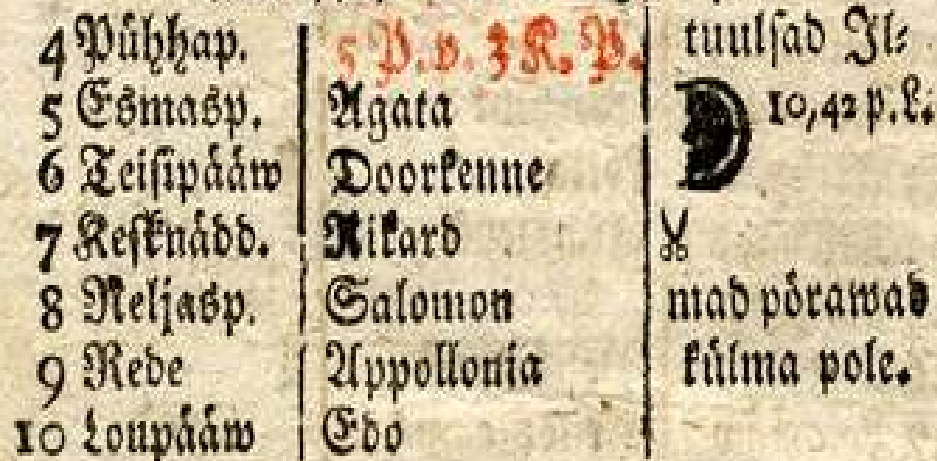 4 Pühhap. 5 P. v. 3 K. P. tuulsad Il⸗
5 Esmasp. Agata 10,42 p. L.
6 Teisipääw Doorkenne
7 Keſknädd. Rikard
8 Neljasp. Salomon mad pörawad
9 Rede Appollonia külma pole.
10 Loupääw Edo